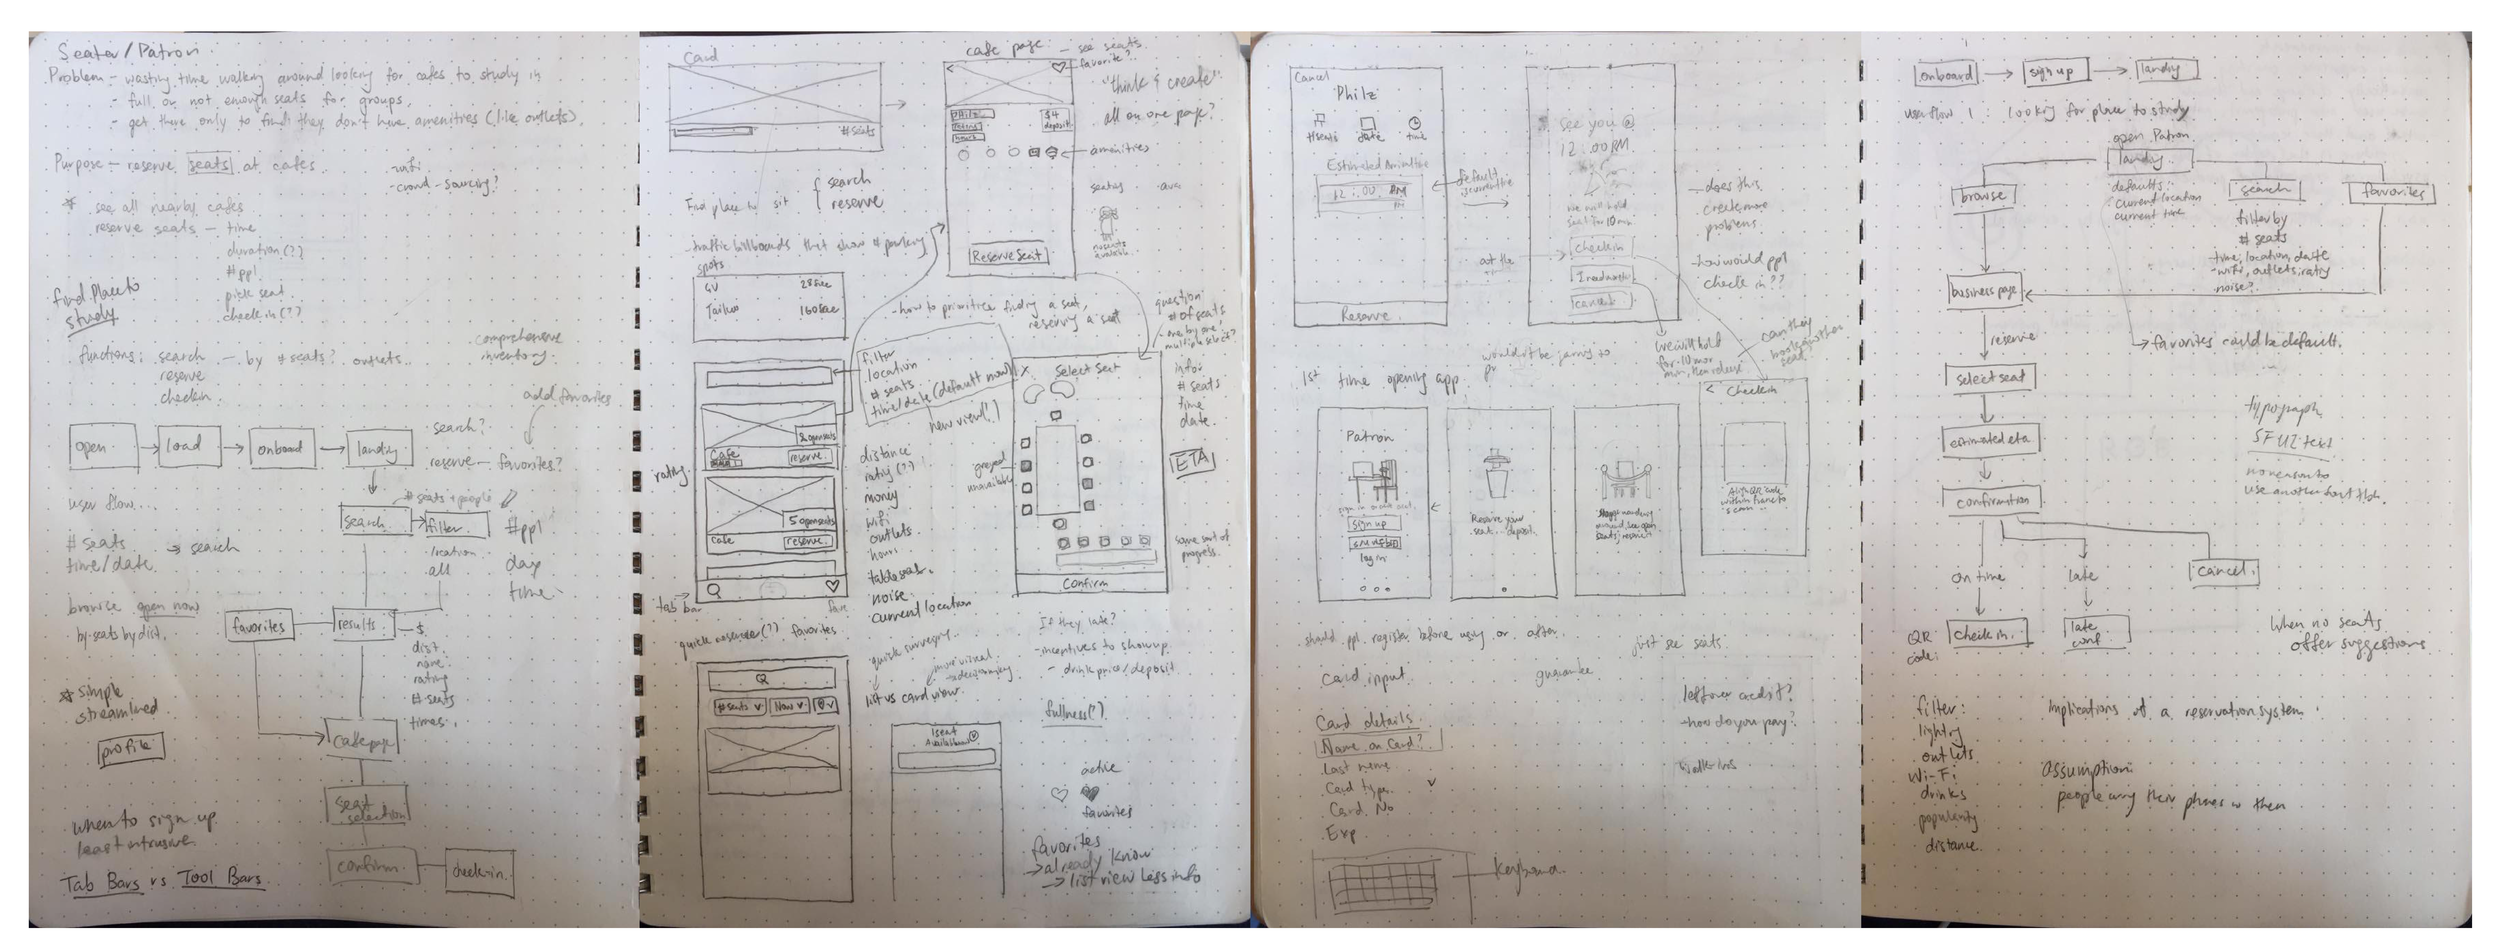 Seater/Patron
Problem - wasting time walking around looking for cafes to study in
- full or not enough seats for groups.
- get there only to find they don't have amenities (like outlets).
Purpose - reserve seats at cafes
- wifi
- crowd-sourcing?
* see all nearby cafes
reserve seats - time
duration (??)
# ppl
pick seat
check in (??)
find place to
study
functions: search - by # seats? outlets
reserve
checkin
comprehensive
inventory
add favorites
open
load
onboard
landing
search?
reserve - favorites?
user flow...
# seats + people
search
filter
location
all
# ppl
day
time
# seats
time/date
→ search
browse open now
by seats by dist.
favorites
results
- $
dist
name
rating
# seats
times
* simple
streamlined
profile
cafe page
seat
selection
confirm
check in
when to sign up
least intrusive
Tab Bars vs Tool Bars
Card
# seats
cafe page
- see seats
favorite?
"think & create"
all on one page?
Philz
hours
$4
deposit
amenities
seating
no seats
available
Reserve Seat
Find place to sit
search
reserve
- traffic billboards that show # parking
spots
GV
Taihuo
- how to prioritize finding a seat,
reserving a seat
question
# of seats
- one by one,
multiple select?
filter
location
# seats
time/date (default now)
new view(!)
2 open seats
Cafe
reserve
5 open seats
cafe
reserve
rating
tab bar
fave
distance
rating (??)
money
wifi
outlets
hours
table seats
noise
current location
X Select Seat
greyed
unavailable
Confirm
info:
# seats
time
date
ETA
some sort of
progress
quick reserve (??) favorites
# seats v
Now v
quick survey
more visual
→ decision making
list vs card view
1 seat
Available
If they late?
- incentives to show up
- drink price/deposit
fullness(?)
active
favorites
favorites
→ already know
→ list view less info
Cancel
Philz
# seats
date
time
Estimated Arrival time
12:00 PM
Reserve
default
is current time
see you @
12:00 PM.
we will hold
seat for 10 min
check in
I need more
cancel
at the
- does this
create more
problems
- how would ppl
check in??
we will hold
for 10 more
min, then release
can they
book another
seat
wouldn't be jarring to
1st time opening app
Patron
sign up
log in
Reserve your
seat... deposit.
< Check in
Align QR code
within frame to
scan
should ppl register before using or after
just see seats
Card input
guarantee
leftover credit?
- how do you pay?
Card details
Name on Card?
Last name
Card type
Card No
Exp
Walk-ins
keyboard
onboard
sign up
landing
userflow 1: looking for place to study
open Patron
landing
browse
search
favorites
defaults:
current location
current time
filter by
# seats
time, location, date
- wifi, outlets, rating
noise?
business page
reserve
→ favorites could be default.
select seat
estimated eta
confirmation
typography
SF UI text
no reason to
use another font tbh.
on time
late
cancel
QR
code:
check in
late
conf
When no seats,
offer suggestions
filter:
lighting
outlets
Wi-Fi
drinks
popularity
distance
Implications of a reservation system
assumption:
people carry their phones w them